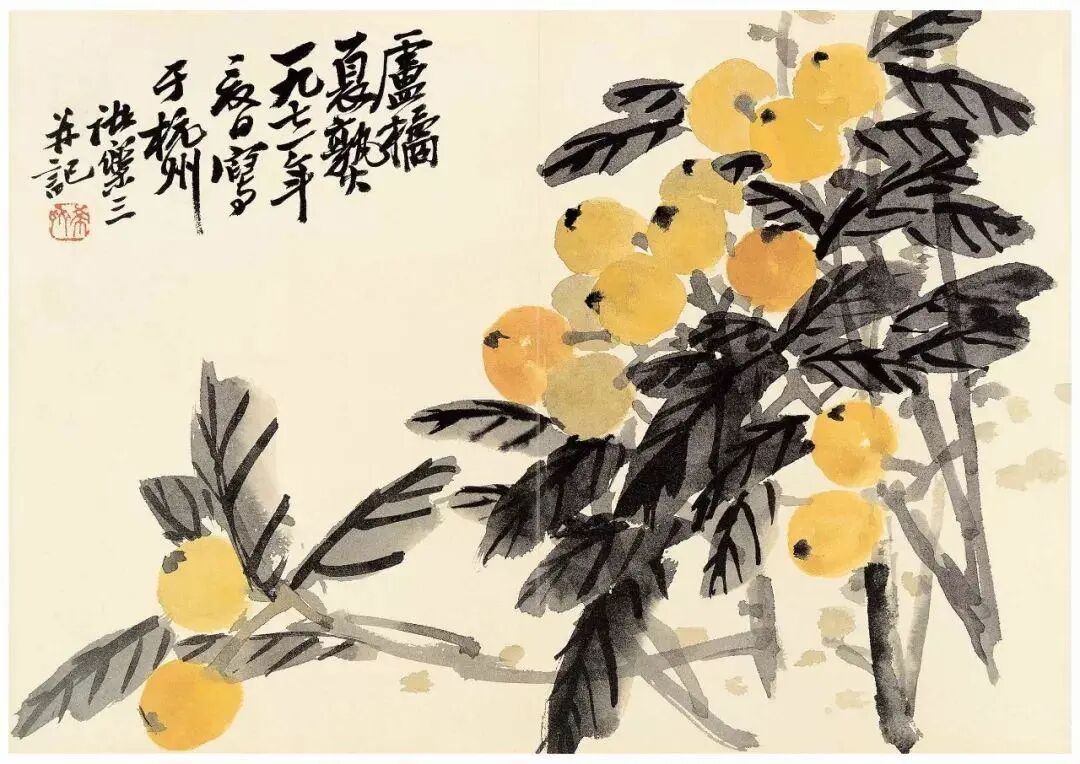 盧橘
夏熟
一九七一年
日寫
于杭州
諸樂三
并記